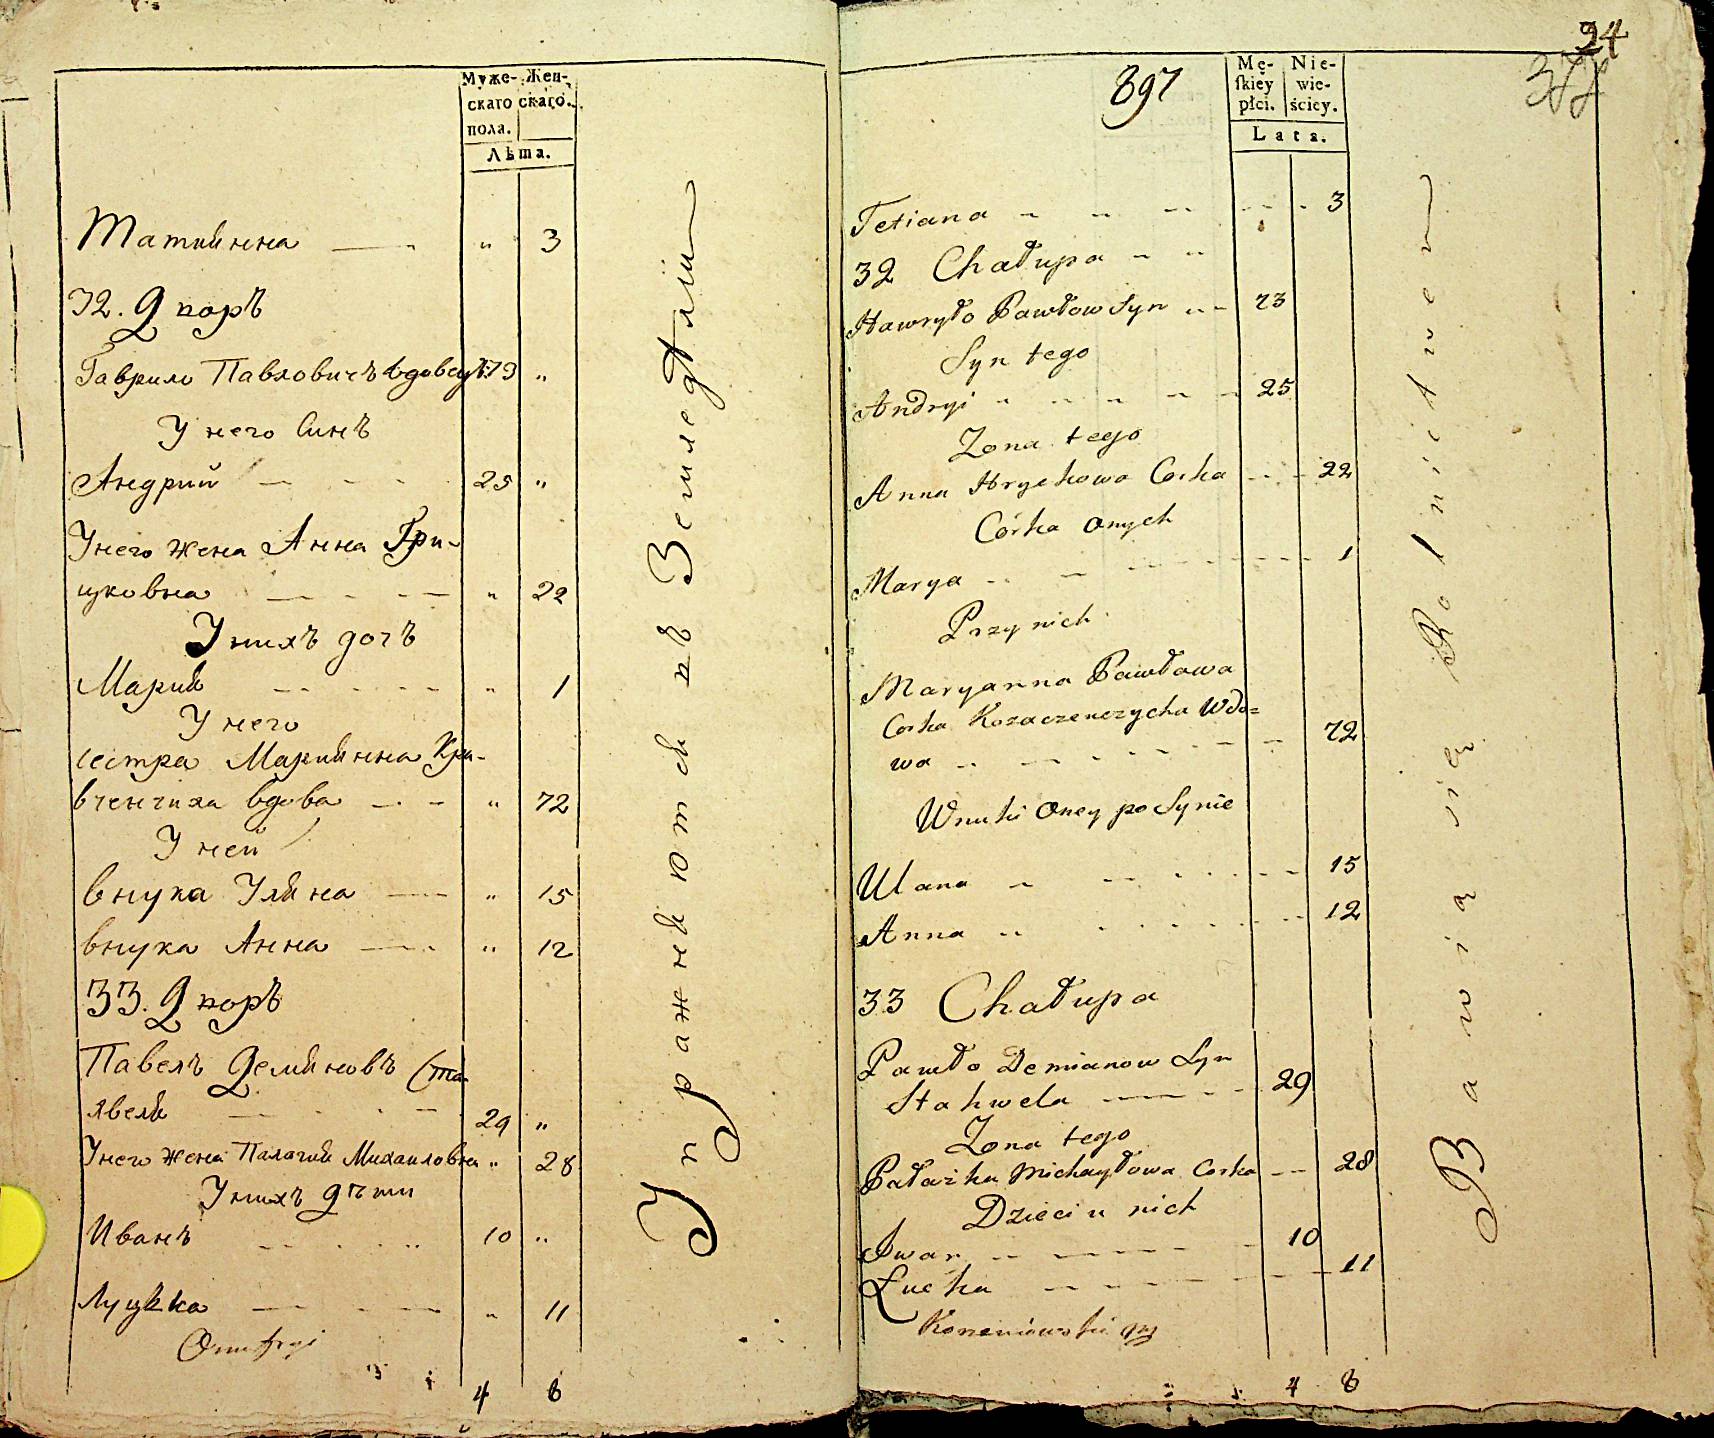 Муже- Жен-
скаго скаго.
пола.
Лѣта.
Татиянна — „ 3
32. Дворъ
Гаврило Павловичъ вдовецъ 73 „
У него Синъ
Андрий — 25 „
У него жена Анна Гри-
цковна — „ 22
У нихъ дочъ
Мария — „ 1
У него
сестра Мариянна Кри-
вченчиха вдова — „ 72
У ней
внука Уляна — „ 15
внука Анна — „ 12
33. Дворъ
Павелъ Демяновъ Ста-
хвеля — 29 „
У него жена Палагия Михаиловна „ 28
У нихъ дѣти
Иванъ 10 „
Луцка — „ 11
4 8
Упражняются въ Земледѣліи
897
94
Mę- Nie-
skiey wie-
płci. ściey.
Lata.
Tetiana 3
32 Chałupa
Hawryło Pawłow Syn 73
Syn tego
Andryi 25
Zona tego
Anna Hryckowa Corka 22
Córka onych
Marya 1
Przy nich
Maryanna Pawłowa
Corka Kozaczenczycha Wdo=
wa 72
Wnuki Oney po Synie
Ulana 15
Anna 12
33 Chałupa
Pawło Demianow Syn
Stahwela 29
Zona tego
Pałażka Michayłowa Corka 28
Dzieci u nich
Iwan 10
Łucka 11
4 8
Bawią się Rolnictwem